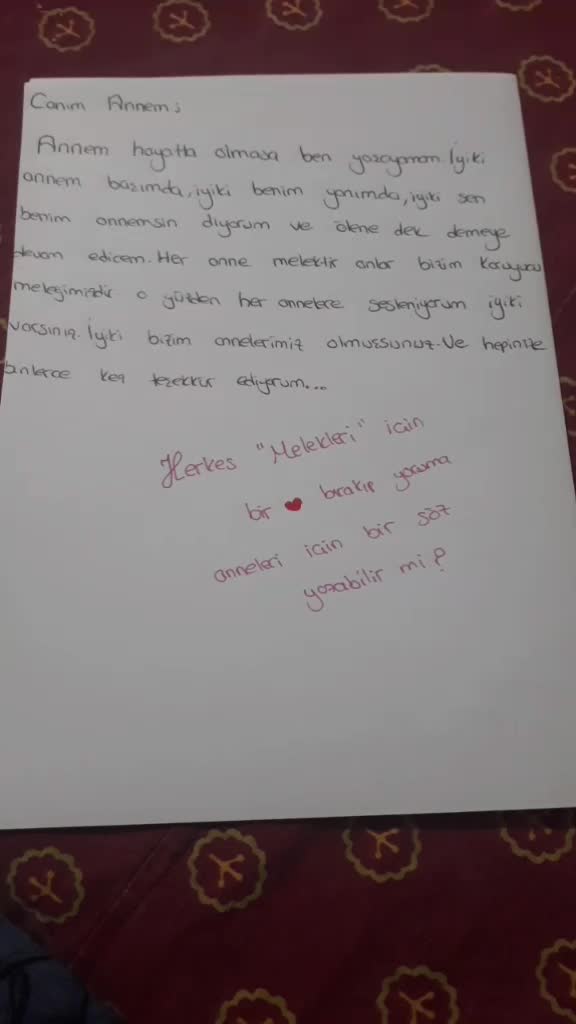 Canım Annem;
Annem hayatta olmasa ben yaşayamam. İyiki
annem başımda, iyiki benim yanımda, iyiki sen
benim annemsin diyorum ve ölene dek demeye
devam edicem. Her anne melektir onlar bizim koruyucu
meleğimizdir o yüzden her annelere sesleniyorum iyiki
varsınız. İyiki bizim annelerimiz olmuşsunuz. Ve hepinize
binlerce kez teşekkür ediyorum...
Herkes "Melekleri" için
bir ❤ bırakıp yoruma
anneleri için bir söz
yazabilir mi?